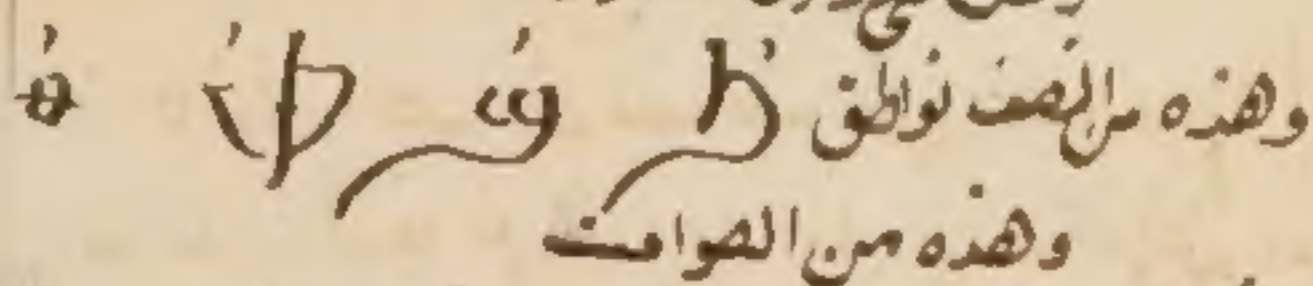 وهذه من النصف نواطق ϧ ϣ ⲫ ⲑ
وهذه من الصوامت